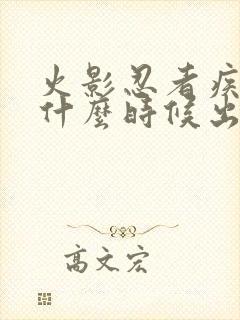 火影忍者疾
什麼時候出
高文宏